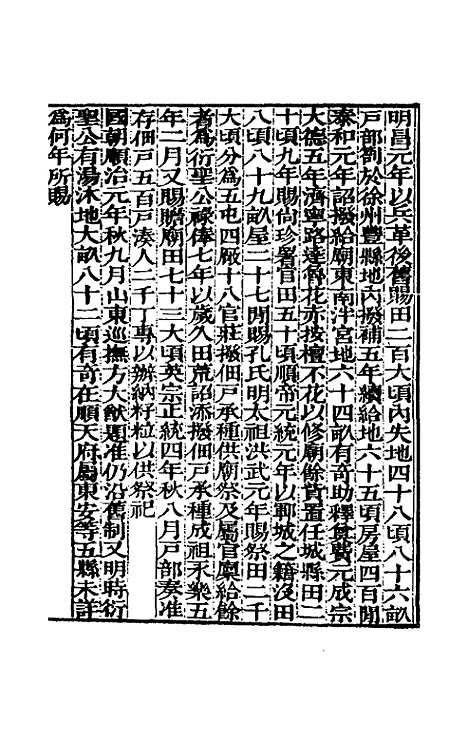 明昌元年以兵革後舊賜田二百大頃內失地四十八頃八十六畝
戸部劄於徐州豐縣地內撥補五年續給地六十五頃房屋四百間
泰和元年詔撥給廟東南泮宮地六十四畝有奇助釋奠費元成宗
大德五年濟寧路達魯花赤按檀不花以修廟餘貲置任城縣田二
十頃九年賜尙珍署官田五十頃順帝元統元年以鄆城之籍沒田
八頃八十九畝屋二十七間賜孔氏明太祖洪武元年賜祭田二千
大頃分爲五屯四廠十八官莊撥佃戸承種供廟祭及屬官廩給餘
者爲衍聖公祿俸七年以歲久田荒詔添撥佃戸承種成祖永樂五
年二月又賜贍廟田七十三大頃英宗正統四年秋八月戸部奏准
存佃戸五百戸湊人二千丁專以辦納籽粒以供祭祀
國朝順治元年秋九月山東巡撫方大猷題准仍沿舊制又明時衍
聖公有湯沐地大畝八十二頃有奇在順天府屬東安等五縣未詳
爲何年所賜